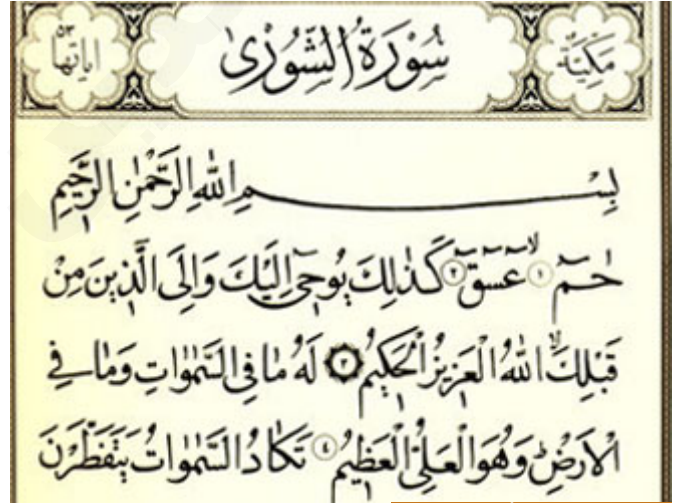 مَكِّيَّةٌ سُورَةُ الشُّورٰى اٰيَاتُهَا ٥٣
بِسْمِ اللّٰهِ الرَّحْمٰنِ الرَّحِيمِ
حٰمٓ ١ عٓسٓقٓ ٢ كَذٰلِكَ يُوحٖٓى اِلَيْكَ وَاِلَى الَّذٖينَ مِنْ
قَبْلِكَۙ اللّٰهُ الْعَزٖيزُ الْحَكٖيمُ ٣ لَهُ مَا فِى السَّمٰوَاتِ وَمَا فِي
الْاَرْضِؕ وَهُوَ الْعَلِىُّ الْعَظٖيمُ ٤ تَكَادُ السَّمٰوَاتُ يَتَفَطَّرْنَ